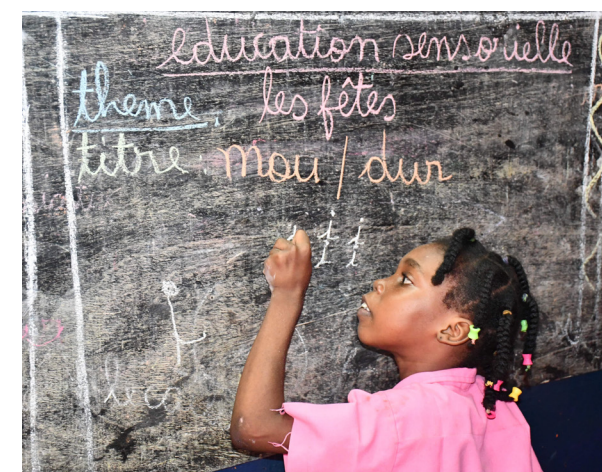 education sensorielle
theme: les fêtes
titre: mou / dur
i i i